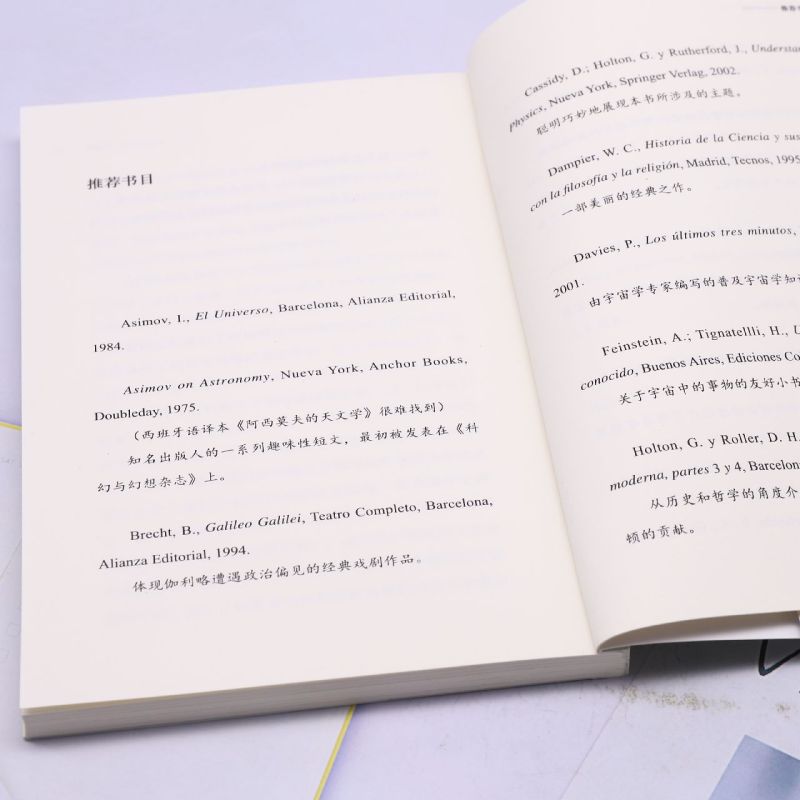 推荐书目
Asimov, I., El Universo, Barcelona, Alianza Editorial,
1984.
Asimov on Astronomy, Nueva York, Anchor Books,
Doubleday, 1975.
（西班牙语译本《阿西莫夫的天文学》很难找到）
知名出版人的一系列趣味性短文，最初被发表在《科
幻与幻想杂志》上。
Brecht, B., Galileo Galilei, Teatro Completo, Barcelona,
Alianza Editorial, 1994.
体现伽利略遭遇政治偏见的经典戏剧作品。
推荐
Cassidy, D.; Holton, G. y Rutherford, J.,
Physics, Nueva York, Springer Verlag, 2002.
聪明巧妙地展现本书所涉及的主题。
Dampier, W. C., Historia de la Ciencia y sus
con la filosofía y la religión, Madrid, Tecnos, 1995
一部美丽的经典之作。
Davies, P., Los últimos tres minutos,
2001.
由宇宙学专家编写的普及宇宙学知
Feinstein, A.; Tignatellli, H., U
conocido, Buenos Aires, Ediciones Co
关于宇宙中的事物的友好小书
Holton, G. y Roller, D. H.
moderna, partes 3 y 4, Barcelon
从历史和哲学的角度介
顿的贡献。